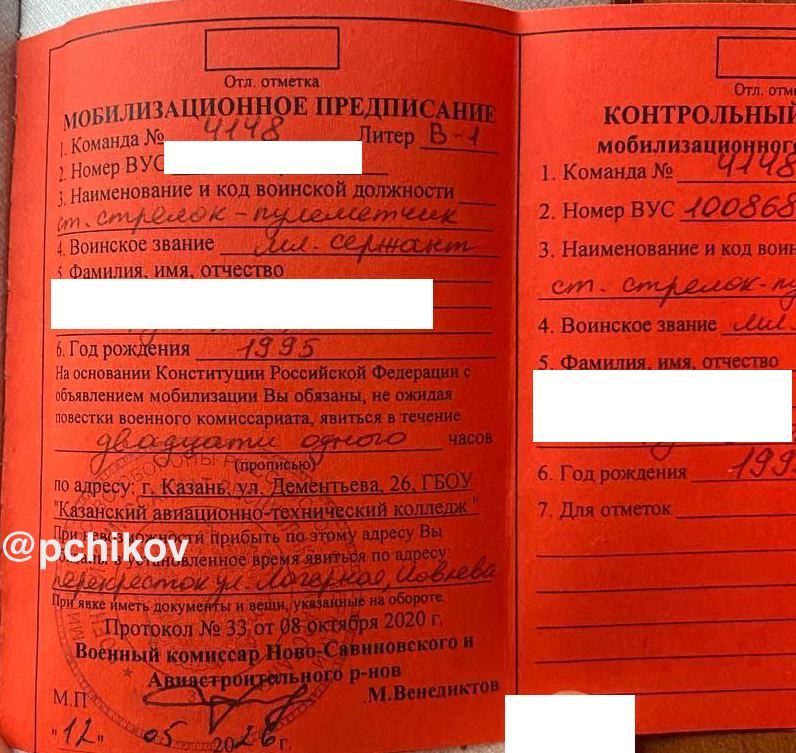 Отл. отметка
МОБИЛИЗАЦИОННОЕ ПРЕДПИСАНИЕ
1. Команда № 4148 Литер В-1
2. Номер ВУС
3. Наименование и код воинской должности
ст. стрелок-пулеметчик
4. Воинское звание мл. сержант
5 Фамилия, имя, отчество
6. Год рождения 1995
На основании Конституции Российской Федерации с
объявлением мобилизации Вы обязаны, не ожидая
повестки военного комиссариата, явиться в течение
двадцати одного часов
(прописью)
по адресу: г. Казань, ул. Дементьева, 26, ГБОУ
"Казанский авиационно-технический колледж"
@pchikov
При невозможности прибыть по этому адресу Вы
в установленное время явиться по адресу:
перекресток ул. Лагерная,
При явке иметь документы и вещи, указанные на обороте.
Протокол № 33 от 08 октября 2020 г.
Военный комиссар Ново-Савиновского и
Авиастроительного р-нов
М.П М.Венедиктов
"12" 05 2026 г.
Отл. отм
КОНТРОЛЬНЫЙ
мобилизационног
1. Команда № 4148
2. Номер ВУС 100868
3. Наименование и код воин
ст. стрелок-пу
4. Воинское звание мл.
5. Фамилия, имя, отчество
6. Год рождения 199
7. Для отметок